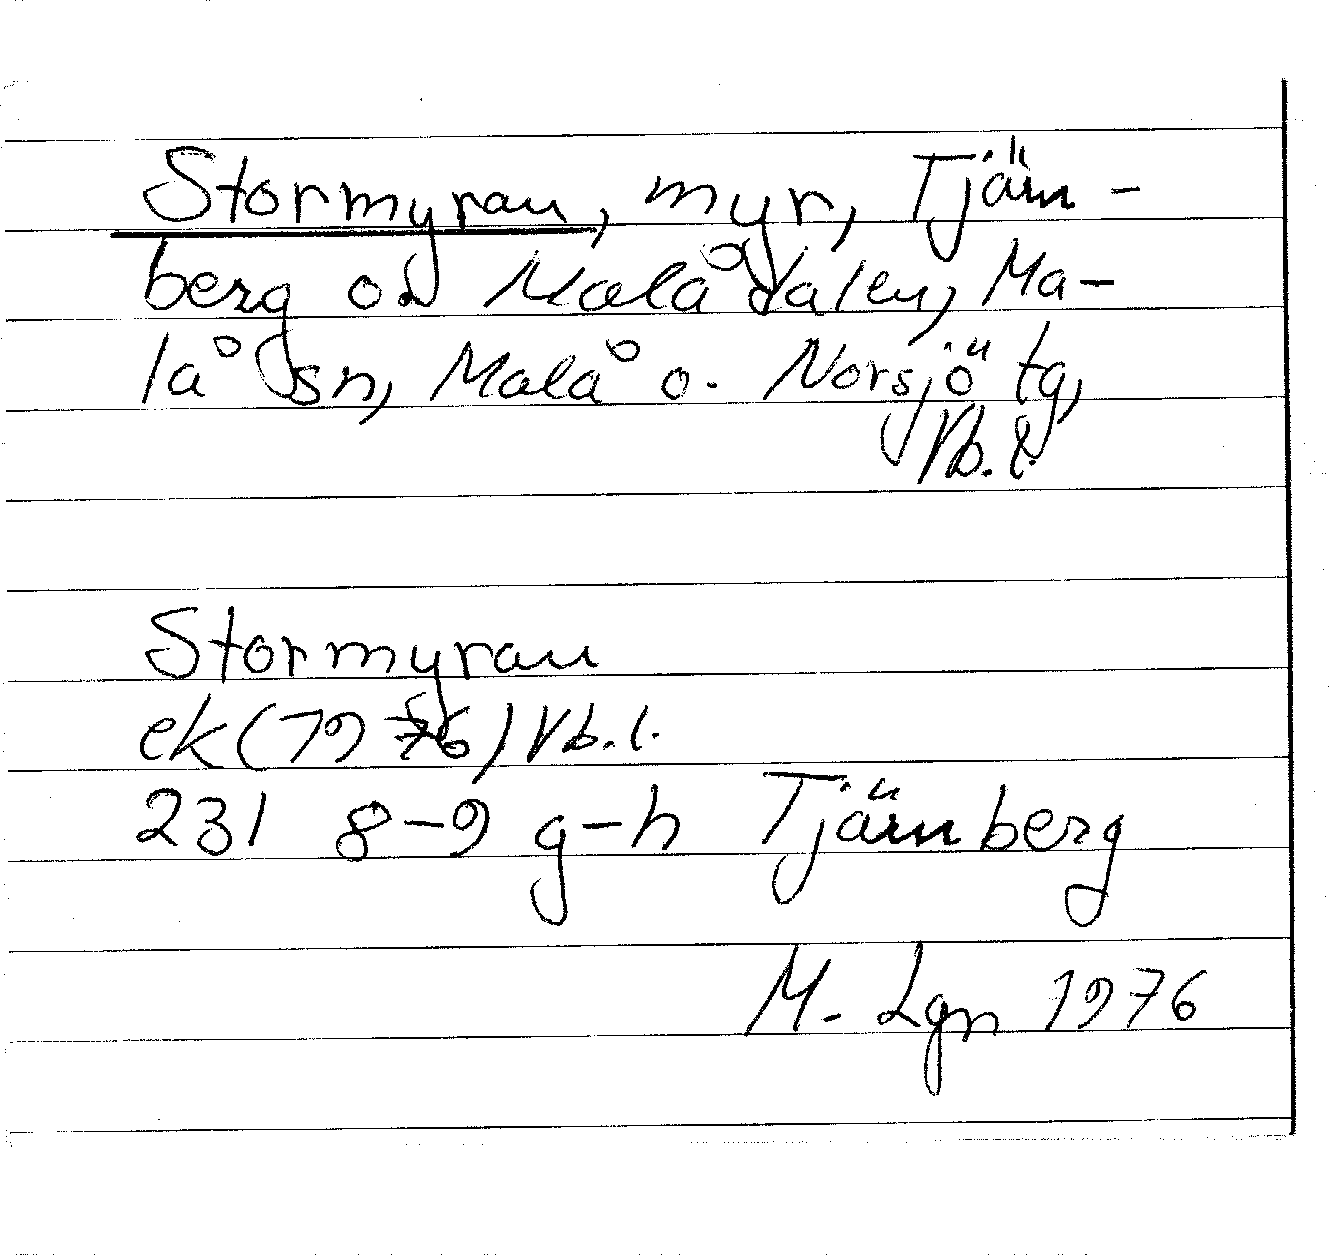 Stormyran, myr, Tjärn-
berg o. Malådalen, Ma-
lå sn, Malå o. Norsjö tg,
Vb. l.
Stormyran
ek (1976) Vb. l.
231 8-9 g-h Tjärnberg
M. Lgn 1976